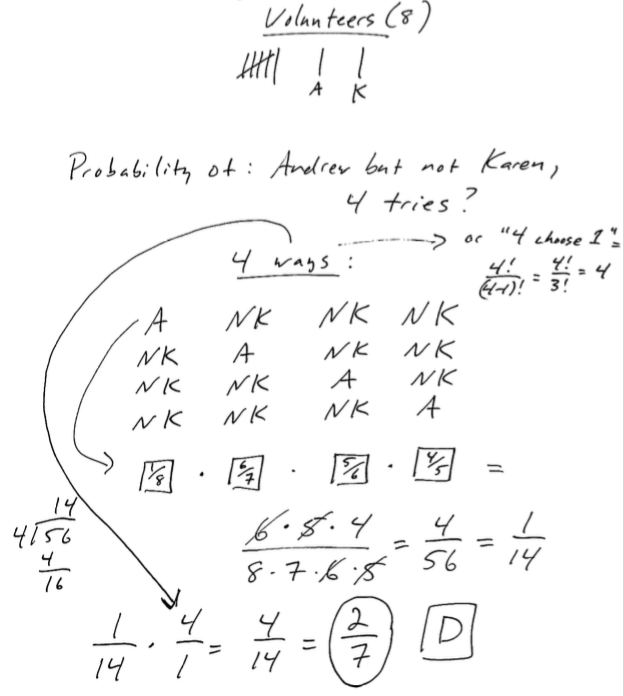 Volunteers (8)
A K
Probability of: Andrew but not Karen,
4 tries?
4 ways: → or "4 choose 1" =
4!/(4-1)! = 4!/3! = 4
A NK NK NK
NK A NK NK
NK NK A NK
NK NK NK A
1/8 · 6/7 · 5/6 · 4/5 =
6·5·4 / 8·7·6·5 = 4/56 = 1/14
14
4)56
4
16
1/14 · 4/1 = 4/14 = 2/7 D